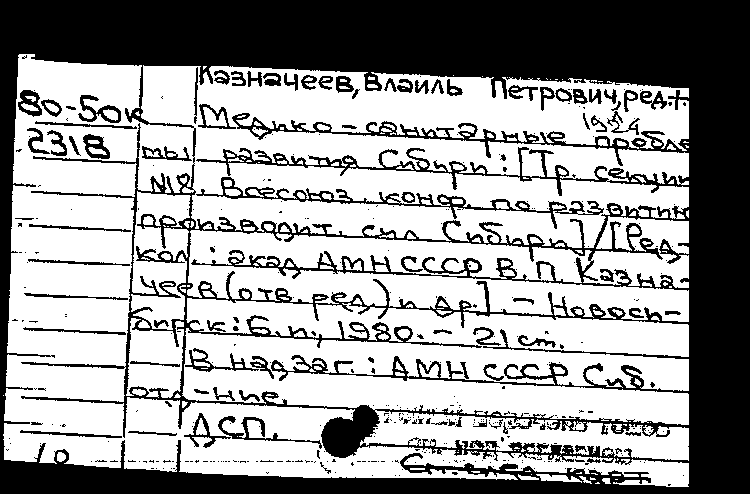 Казначеев, Влаиль Петрович, ред.
1924
80-50к Медико-санитарные пробле
2318 мы развития Сибири: [Тр. секции
№8. Всесоюз. конф. по развитию
производит. сил Сибири] / [Ред-
кол.: акад АМН СССР В.П. Казна-
чеев (отв. ред.) и др.]. - Новоси-
бирск: Б.и., 1980. - 21 ст.
В надзаг.: АМН СССР. Сиб.
отд-ние.
ДСП.
10 См. след. карт.